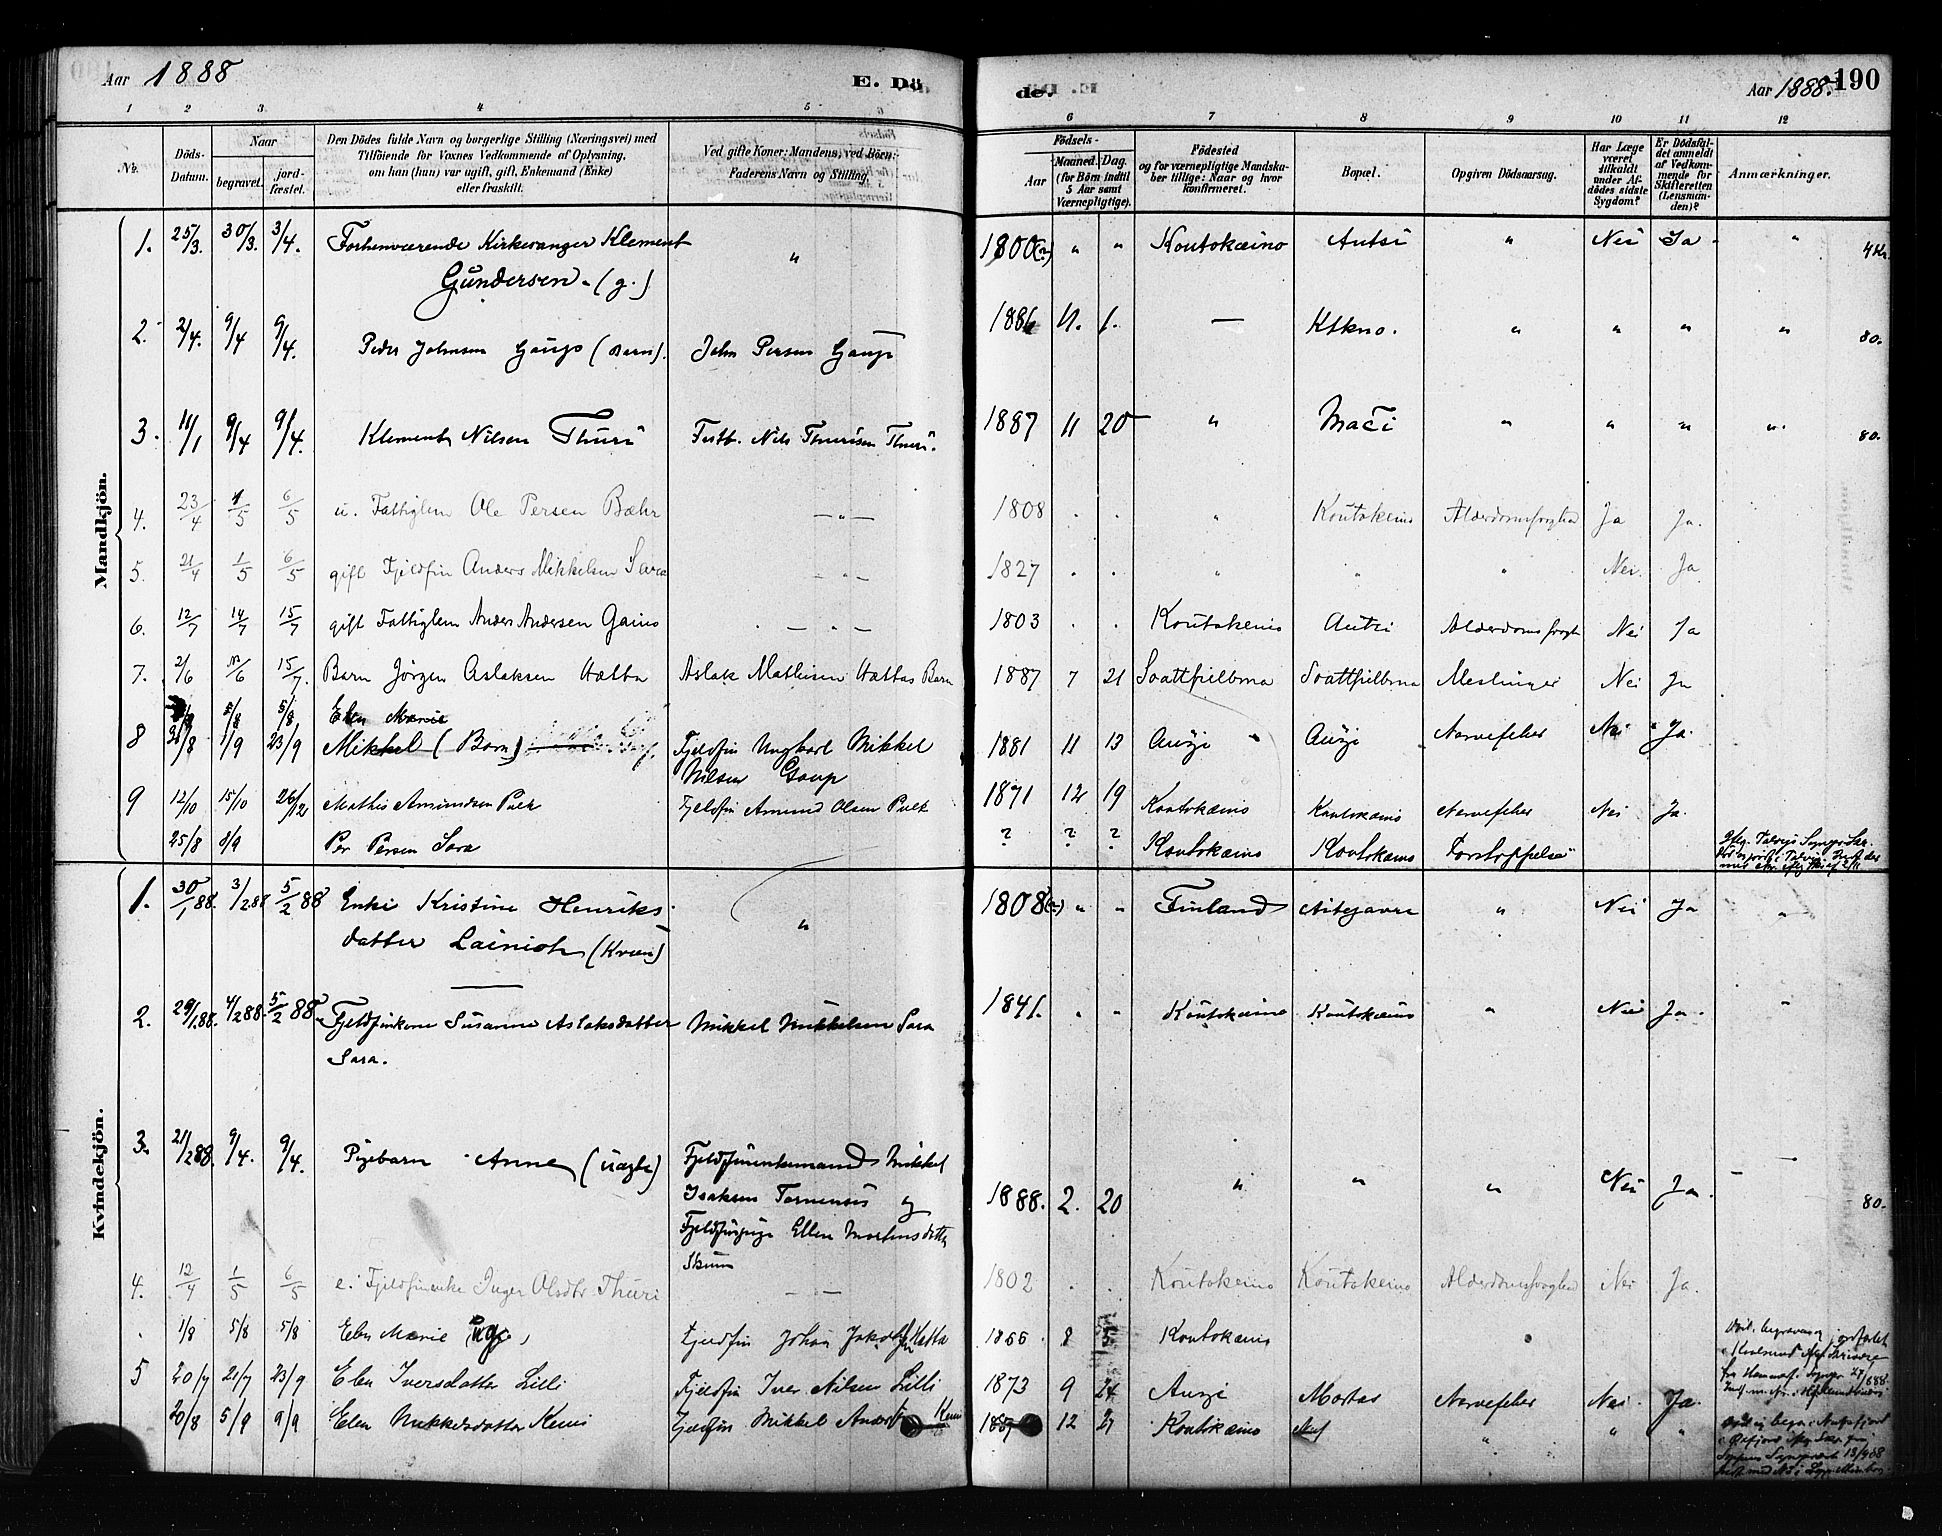 Aar 1888
E. Dö
de.
Aar 1888.
190
1 2 3 4 5 6 7 8 9 10 11 12
Nr.
Döds-Datum.
Naar
begravet.
jord-fæstet.
Den Dödes fulde Navn og borgerlige Stilling (Næringsvei) med
Tilföiende for Voxnes Vedkommende af Oplysning,
om han (hun) var ugift, gift, Enkemand (Enke)
eller fraskilt.
Ved gifte Koner: Mandens, ved Börn:
Faderens Navn og Stilling.
Födsels-
Aar
Maaned. Dag.
(for Börn indtil
5 Aar samt
Værnepligtige).
Födested
og for værnepligtige Mandska-
ber tillige: Naar og hvor
konfirmeret.
Bopæl.
Opgiven Dödsaarsag.
Har Læge
været
tilkaldt
under Af-
dödes sidste
Sygdom?
Er Dödsfal-
det anmeldt
af Vedkom-
mende for
Skifteretten
(Lensman-
den)?
Anmærkninger.
Mandkjön.
1. 25/3. 30/3. 3/4. Forhenværende Kirkesanger Klement " 1800(?) " " Koutokæino Autsi " Nei Ja " 4 Kr.
Gundersen. (g.)
2. 2/4. 9/4 9/4. Peder Johnsen Gaup (Barn). John Persen Gaup 1886 11. 1. — Ktkno. " " " " 80.
3. 11/1 9/4 9/4. Klemet Nilsen Thuri Fastb. Nils Thurisen Thuri. 1887 11 20 " Maci " " " " 80.
4. 23/4 1/5 6/5 u. Fattiglem Ole Persen Bæhr — " — 1808 . . " Koutokeino Ja Ja.
5. 21/4 1/5 6/5 gift Fjeldfin Anders Mikkelsen Sara — " — 1827 . . " " " Nei. Ja
6. 12/7 14/7 15/7 gift Fattiglem Anders Andersen Gaino . — " — 1803 . . Koutokeino Autsi Nei Ja
7. 2/6 /6 15/7. Barn Jörgen Aslaksen Hætta Aslak Mathisen Hættas Barn 1887 7 21 Soattfielbma Soattfielbma Meslinger Nei Ja
5/8 5/8 Elen Marie
8 31/8 1/9 23/9 Mikkel (Barn) Fjeldfin Ungkarl Mikkel 1881 11 13 Auzi Auzi Nervefeber Nei Ja.
Nilsen Gaup
9 12/10 15/10 26/12 Mathis Amundsen Pulk Fjeldfin Amund Olsen Pulk 1871 12 19 Koutokæino Koutokæino Nervefeber Nei Ja.
25/8 8/9 Per Persen Sara ? ? ? Koutokæino Koutokæino Forstoppelse
Kvindekjön.
1. 30/1 88. 3/2 88 5/2 88 Enke Kristine Henriks- " 1808(?) " " Finland Aitejavre " Nei Ja "
datter Lainioh (Kvæn)
2. 29/1 88. 4/2 88. 5/2 88 Fjeldfinkone Susanne Aslaksdatter Mikkel Mikkelsen Sara 1841. . " Koutokæino Koutokæino " Nei Ja. "
Sara.
3. 21/2 88. 9/4. 9/4. Pigebarn Anne (uægte) Fjeldfinenkemand Mikkel
Isaksen Tornensis og 1888. 2. 20 " " " Nei Ja. 80.
Fjeldfinpige Ellen Mortensdatter
Skum
4. 12/4 1/5 6/5 e. Fjeldfinenke Inger Olsdtr. Thuri — — 1802 . . Koutokeino Koutokeino Nei Ja.
1/8 5/8 5/8 Elen Marie Fjeldfin Johan Jakobsen Hætta 8 Koutokæino
5 20/7 21/7 23/9 Elen Iversdatter Lilli Fjeldfin Iver Nilsen Lilli 1873 9 24 Auzi Nervefeber Nei. Ja.
20/8 5/9 9/9 Elen Mikkelsdatter Kemi Fjeldfin Mikkel Anders Kemi 12 Koutokæino " " "